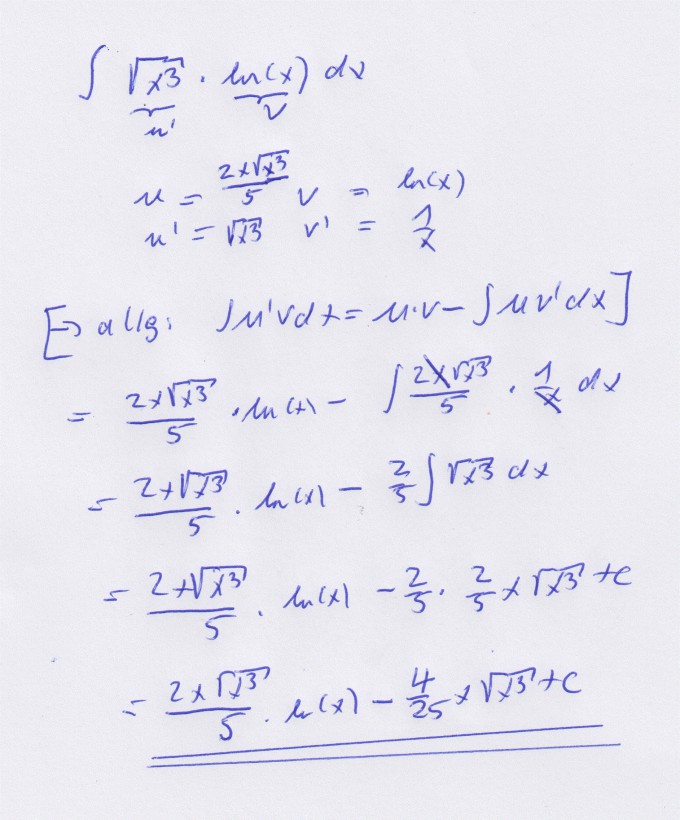 ∫ √x³ · ln(x) dx
u' v
u = 2x√x³/5 v = ln(x)
u' = √x³ v' = 1/x
[→ allg: ∫u'v dx = u·v - ∫u v' dx]
= 2x√x³/5 · ln(x) - ∫ 2x√x³/5 · 1/x dx
= 2x√x³/5 · ln(x) - 2/5 ∫ √x³ dx
= 2x√x³/5 · ln(x) - 2/5 · 2/5 x √x³ + c
= 2x√x³/5 · ln(x) - 4/25 x √x³ + c